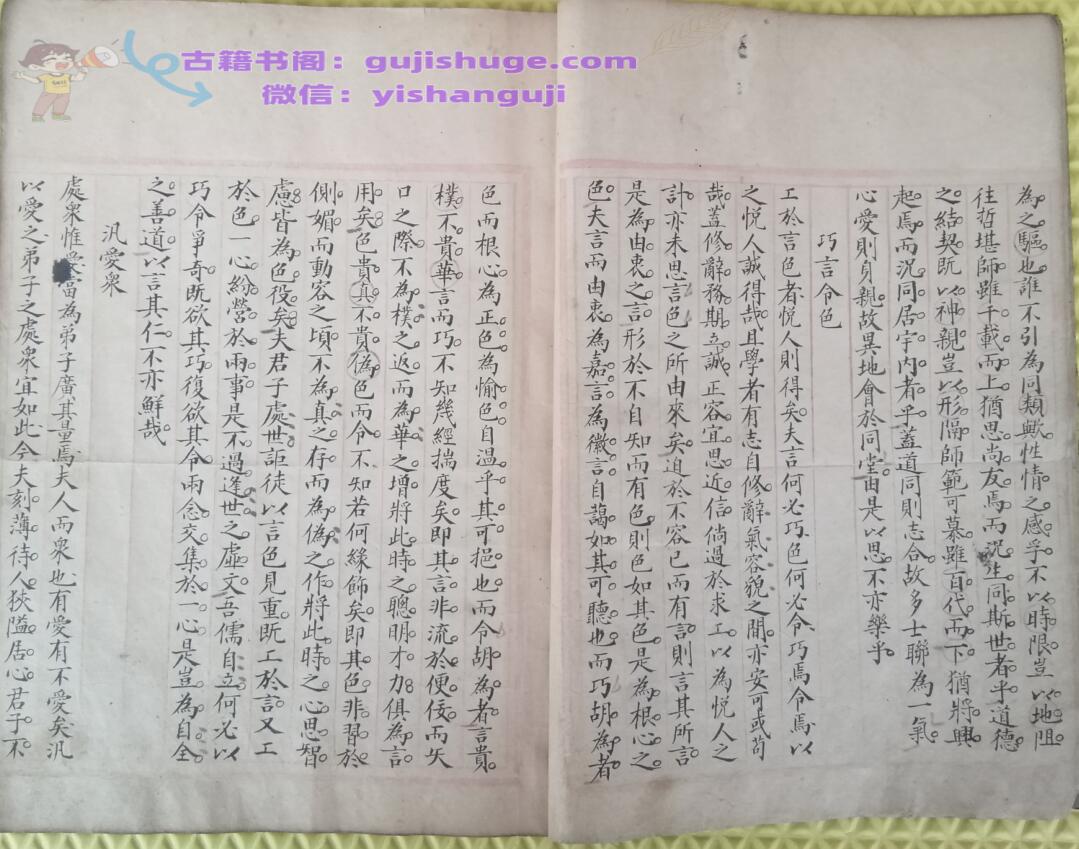 古籍书阁：gujishuge.com
微信：yishanguji
為之驅也誰不引為同類歟性情之感孚不以時限豈以地阻
往哲堪師雖千載而上猶思尚友焉而況生同斯世者乎道德
之結契既以神親豈以形隔師範可慕雖百代而下猶將興
起焉而況同居宇內者乎蓋道同則志合故多士聯為一氣
心愛則身親故異地會於同堂由是以思不亦樂乎
巧言令色
工於言色者悅人則得矣夫言何必巧色何必令巧焉令焉以
之悅人誠得哉且學者有志自修辭氣容貌之間亦安可或苟
哉蓋修辭務期立誠正容宜思近信倘過於求工以為悅人之
計亦未思言色之所由來矣迫於不容已而有言則言其所言
是為由衷之言形於不自知而有色則色如其色是為根心之
色夫言而由衷為嘉言為徽言自藹如其可聽也而巧胡為者
色而根心為正色為愉色自溫乎其可挹也而令胡為者言貴
樸不貴華言而巧不知幾經揣度矣即其言非流於便佞而矢
口之際不為樸之返而為華之增將此時之聰明才力俱為言
用矣色貴真不貴偽色而令不知若何緣飾矣即其色非習於
側媚而動容之頃不為真之存而為偽之作將此時之心思智
慮皆為色役矣夫君子處世詎徒以言色見重既工於言又工
於色一心紛營於兩事是不過逢世之虛文吾儒自立何必以
巧令爭奇既欲其巧復欲其令兩念交集於一心是豈為自全
之善道以言其仁不亦鮮哉
汎愛衆
處衆惟愛當為弟子廣其量焉夫人而衆也有愛有不愛矣汎
以愛之弟子之處衆宜如此今夫刻薄待人狹隘居心君子不